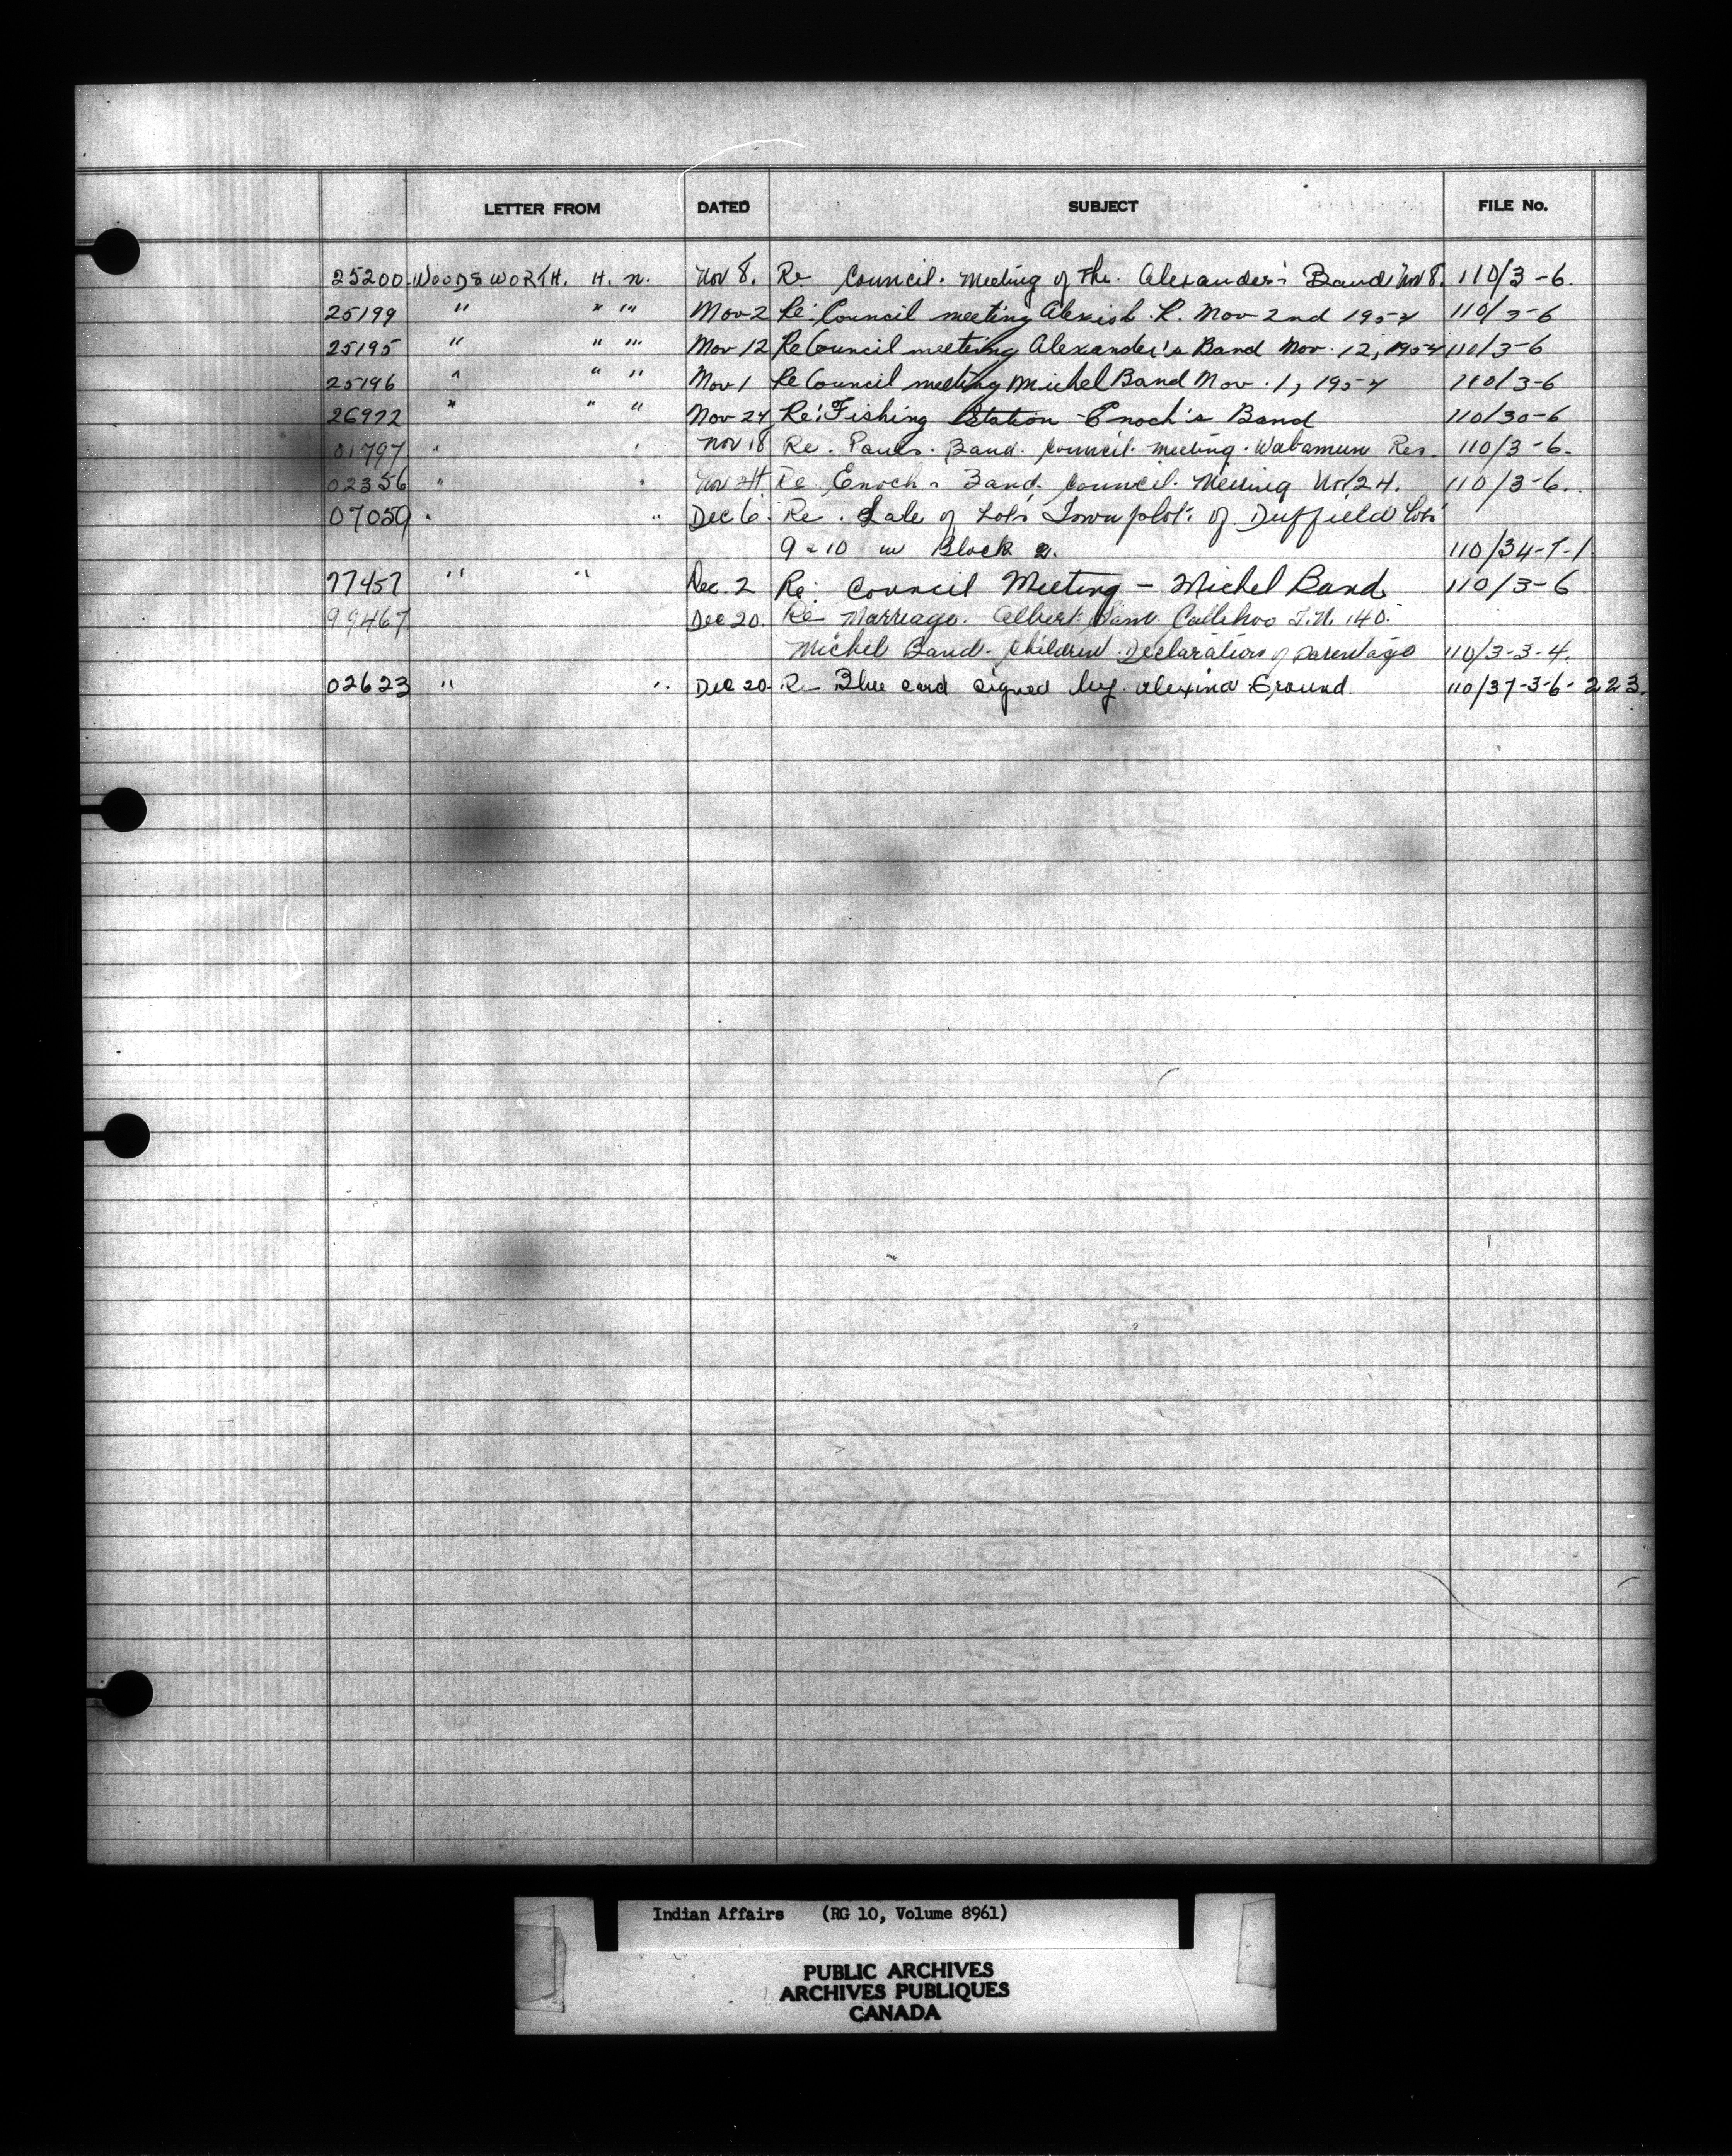 LETTER FROM DATED SUBJECT FILE No.
25200 WOODSWORTH. H. N. Nov 8. Re Council. Meeting of the. Alexander's Band Nov 8. 110/3-6.
25199 " " "' Nov 2 Re: Council meeting Alexish. R. Nov 2nd 1954 110/3-6
25195 " " "' Nov 12 Re Council meeting Alexander's Band Nov. 12, 1954 110/3-6
25196 " " " Nov 1 Re Council meeting Michel Band Nov. 1, 1954 110/3-6
26922 " " " Nov 24 Re: Fishing Station - Enoch's Band 110/30-6
01797 " " Nov 18 Re. Pauls. Band. Council. Meeting. Wabamun Res. 110/3-6.
02356 " " Nov 24 Re Enoch's Band. Council. Meeting Nov 24. 110/3-6.
07059 " " Dec 6. Re. Sale of Lots Townplot. of Duffield Lots
9 & 10 in Block 2. 110/34-7-1
77457 " " Dec. 2 Re: Council Meeting - Michel Band 110/3-6
99467 Dec 20. Re Marriage. Albert Sam. Callehoo T.N. 140.
Michel Band. Children. Declaration of parentage 110/3-3-4.
02623 " " Dec 20. Re Blue card signed by. Alexina Ground. 110/37-3-6-223.
Indian Affairs (RG 10, Volume 8961)
PUBLIC ARCHIVES
ARCHIVES PUBLIQUES
CANADA